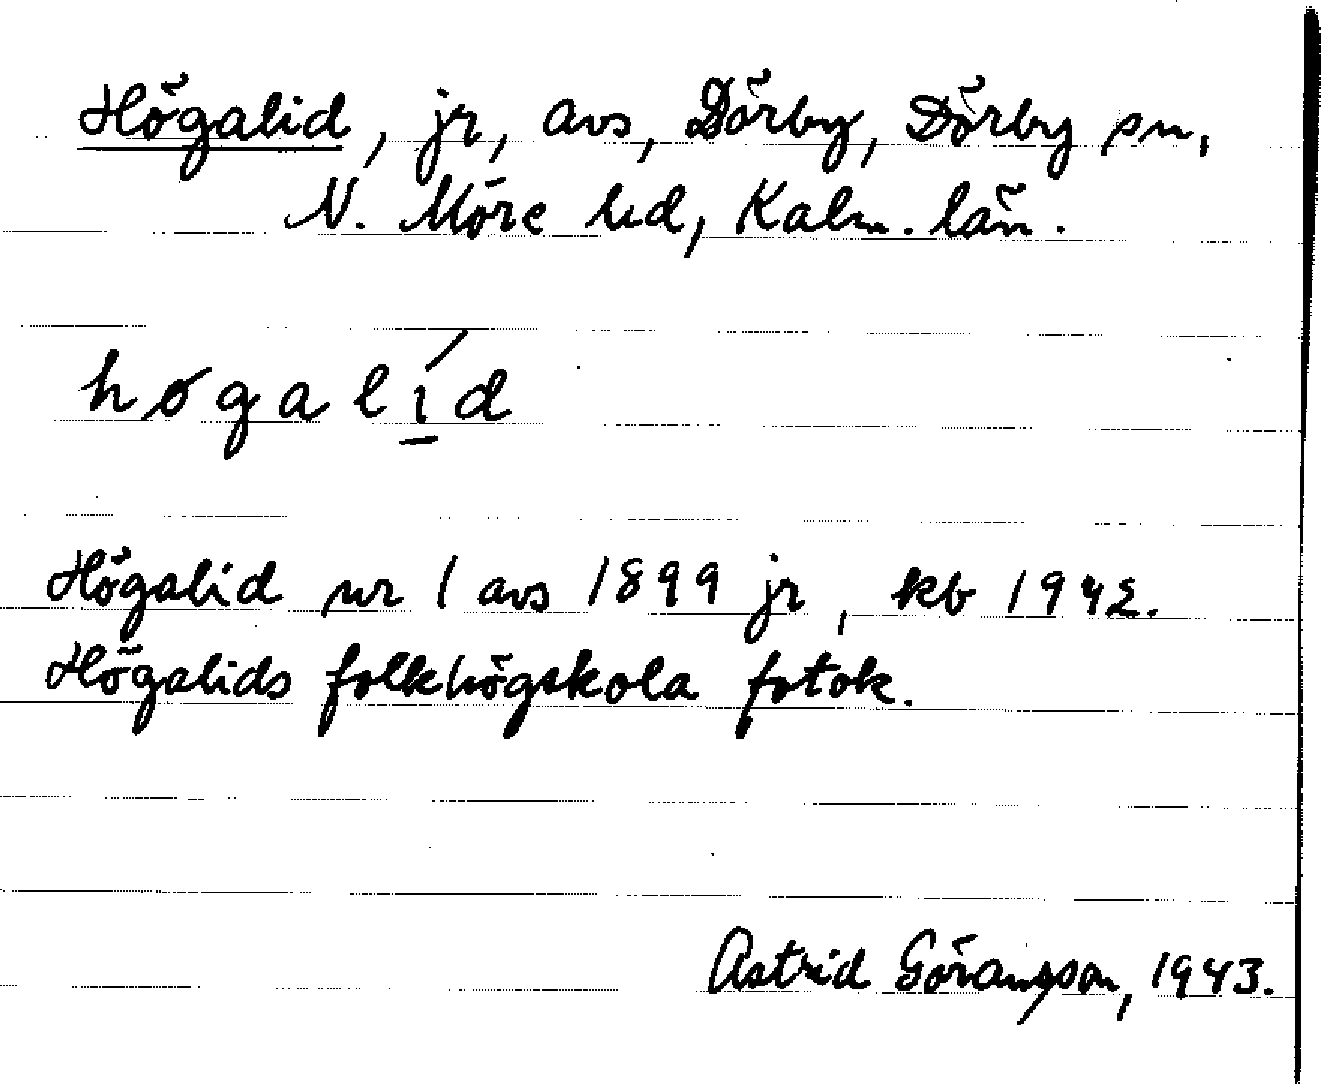 Högalid, jr, avs, Dörby, Dörby sn,
N. Möre hd, Kalm. län.
høgalí̱d
Högalid nr 1 avs 1899 jr, kb 1942.
Högalids folkhögskola fotok.
Astrid Göransson, 1943.